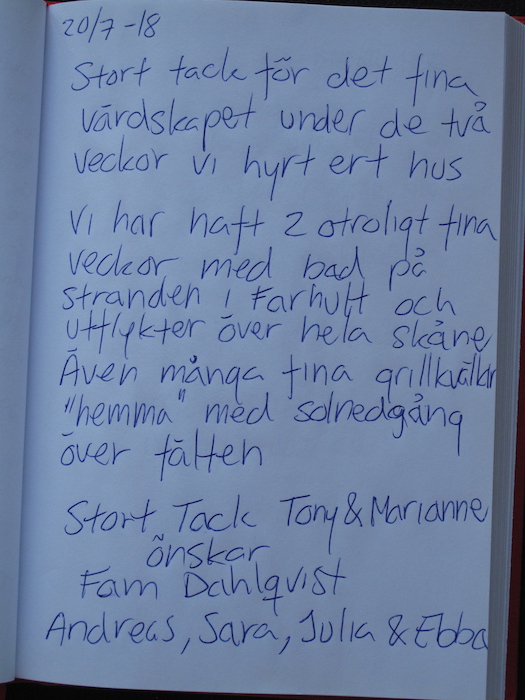 20/7-18
Stort tack för det fina
värdskapet under de två
veckor vi hyrt ert hus
Vi har haft 2 otroligt fina
veckor med bad på
stranden i Farhult och
utflykter över hela skåne
Även många fina grillkvällar
"hemma" med solnedgång
över fälten
Stort Tack Tony & Marianne
önskar
Fam Dahlqvist
Andreas, Sara, Julia & Ebba